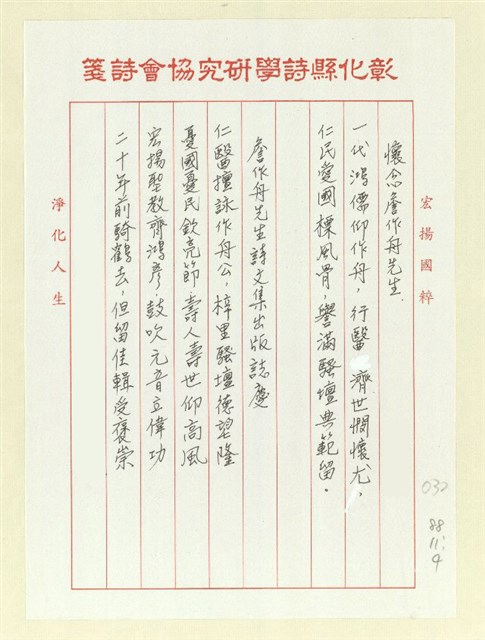 彰化縣詩學研究協會詩箋
宏揚國粹
懷念詹作舟先生.
一代鴻儒仰作舟，行醫濟世憫懷尤，
仁民愛國標風骨，譽滿騷壇典範留。
詹作舟先生詩文集出版誌慶
仁醫擅詠作舟公，梓里騷壇德望隆
憂國憂民欽亮節，壽人壽世仰高風
宏揚聖教齊鴻彥，鼓吹元音立偉功
二十年前騎鶴去，但留佳輯受褒崇
淨化人生
032
88
11.
4